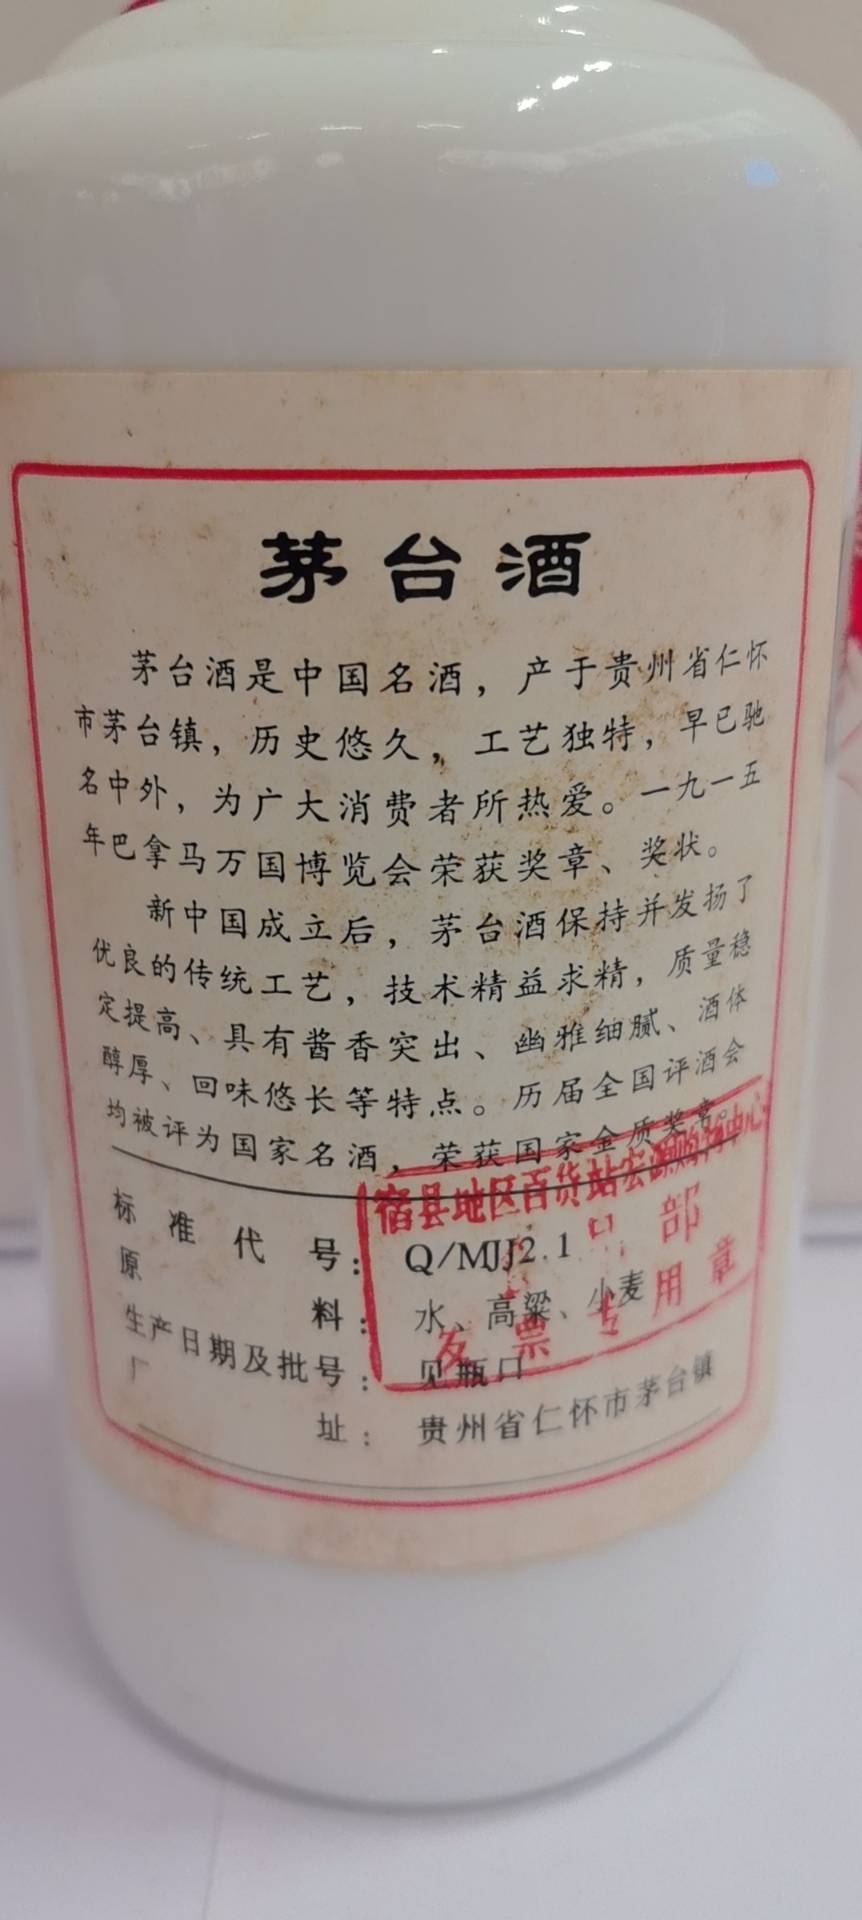 茅台酒
茅台酒是中国名酒，产于贵州省仁怀
市茅台镇，历史悠久，工艺独特，早已驰
名中外，为广大消费者所热爱。一九一五
年巴拿马万国博览会荣获奖章、奖状。
新中国成立后，茅台酒保持并发扬了
优良的传统工艺，技术精益求精，质量稳
定提高、具有酱香突出、幽雅细腻、酒体
醇厚、回味悠长等特点。历届全国评酒会
均被评为国家名酒，荣获国家金质奖章。
宿县地区百货站宏源购物中心
部
发票专用章
标准代号：Q/MJJ2.1
原料：水、高粱、小麦
生产日期及批号：见瓶口
厂址：贵州省仁怀市茅台镇